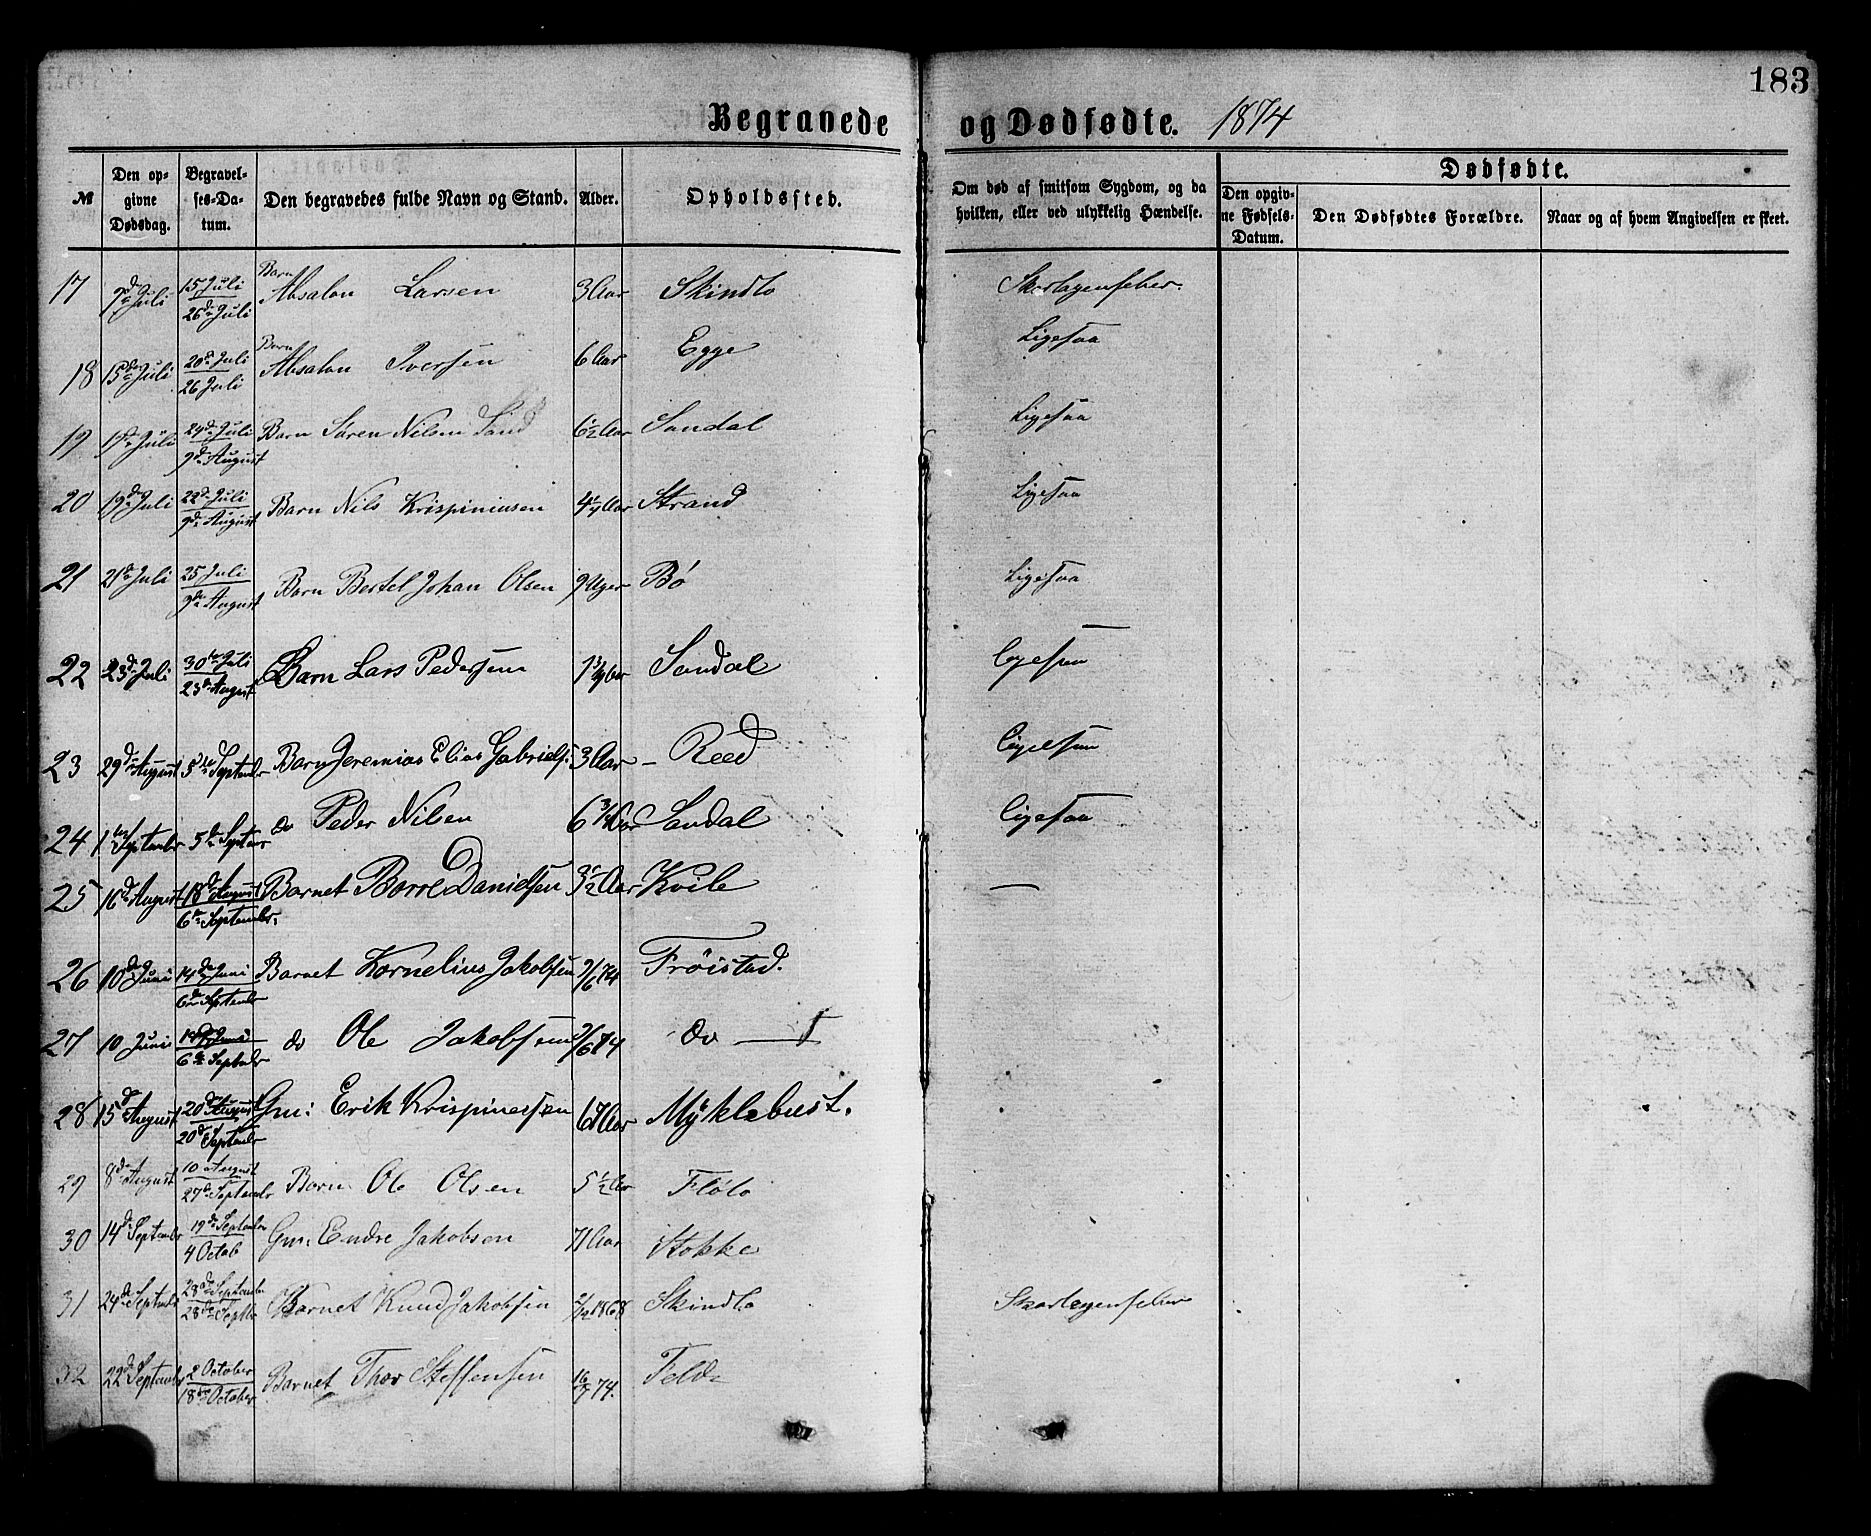 183
Begravede og Dødfødte. 1874
№ | Den opgivne Dødsdag. | Begravelses-Datum. | Den begravedes fulde Navn og Stand. | Alder. | Opholdssted. | Om død af smitsom Sygdom, og da hvilken, eller ved ulykkelig Hændelse. | Dødfødte. | Den opgivne Fødsels-Datum. | Den Dødfødtes Forældre. | Naar og af hvem Angivelsen er skeet.
17 | 9de Juli | 15 Juli / 26de Juli | Barn Absalon Larsen | 3 Aar | Skindlo | Skarlagensfeber.
18 | 15de Juli | 20de Juli / 26 Juli | Barn Absalon Iversen | 6 Aar | Egge | Ligesaa
19 | Juli | 24de Juli / 9de August | Barn Søren Nilsen Sand | 6½ Aar | Sandal | Ligesaa
20 | 19de Juli | 22de Juli / 9de August | Barn Nils Krispiniusen | 4¼ Aar | Strand | Ligesaa
21 | 21de Juli | 25 Juli / 9de August | Barn Bertel Johan Olsen | 9 Uger | Bø | Ligesaa
22 | 23de Juli | 30te Juli / 23de August | Barn Lars Pedersen | 1¾ Aar | Sandal | Ligesaa
23 | 29de August | 5te September | Barn Jeremias Elias Gabriels: | 3 Aar | Reed | Ligesaa
24 | 1ste September | 5te Septbr | do Peder Nilsen | 6¾ Aar | Sandal | Ligesaa
25 | 16de August | 18de August / 6te September. | Barnet Borre Danielsen | 3½ Aar | Kvile | —
26 | 10de Juni | 14de Juni / 6te September | Barnet Kornelius Jakobsen | 9/6 74 | Frøistad.
27 | 10 Juni | 14de Juni / 6te Septebr | do Ole Jakobsen | 9/6 74 | do —
28 | 15de August | 20de August / 20de September | Gm: Erik Krispinussen | 67 Aar | Myklebust.
29 | 8de August | 10 August / 27de September | Barn Ole Olsen | 5½ Aar | Flølo
30 | 14de September | 19de September / 4 Octob | Gm: Endre Jakobsen | 71 Aar | Stokke
31 | 24de September | 28de September / 28de Septbr | Barnet Knud Jakobsen | /12 1868 | Skindlo | Skarlagensfeber
32 | 22de September | 2 October / 18de October | Barnet Thor Steffensen | 16/9 74. | Felde